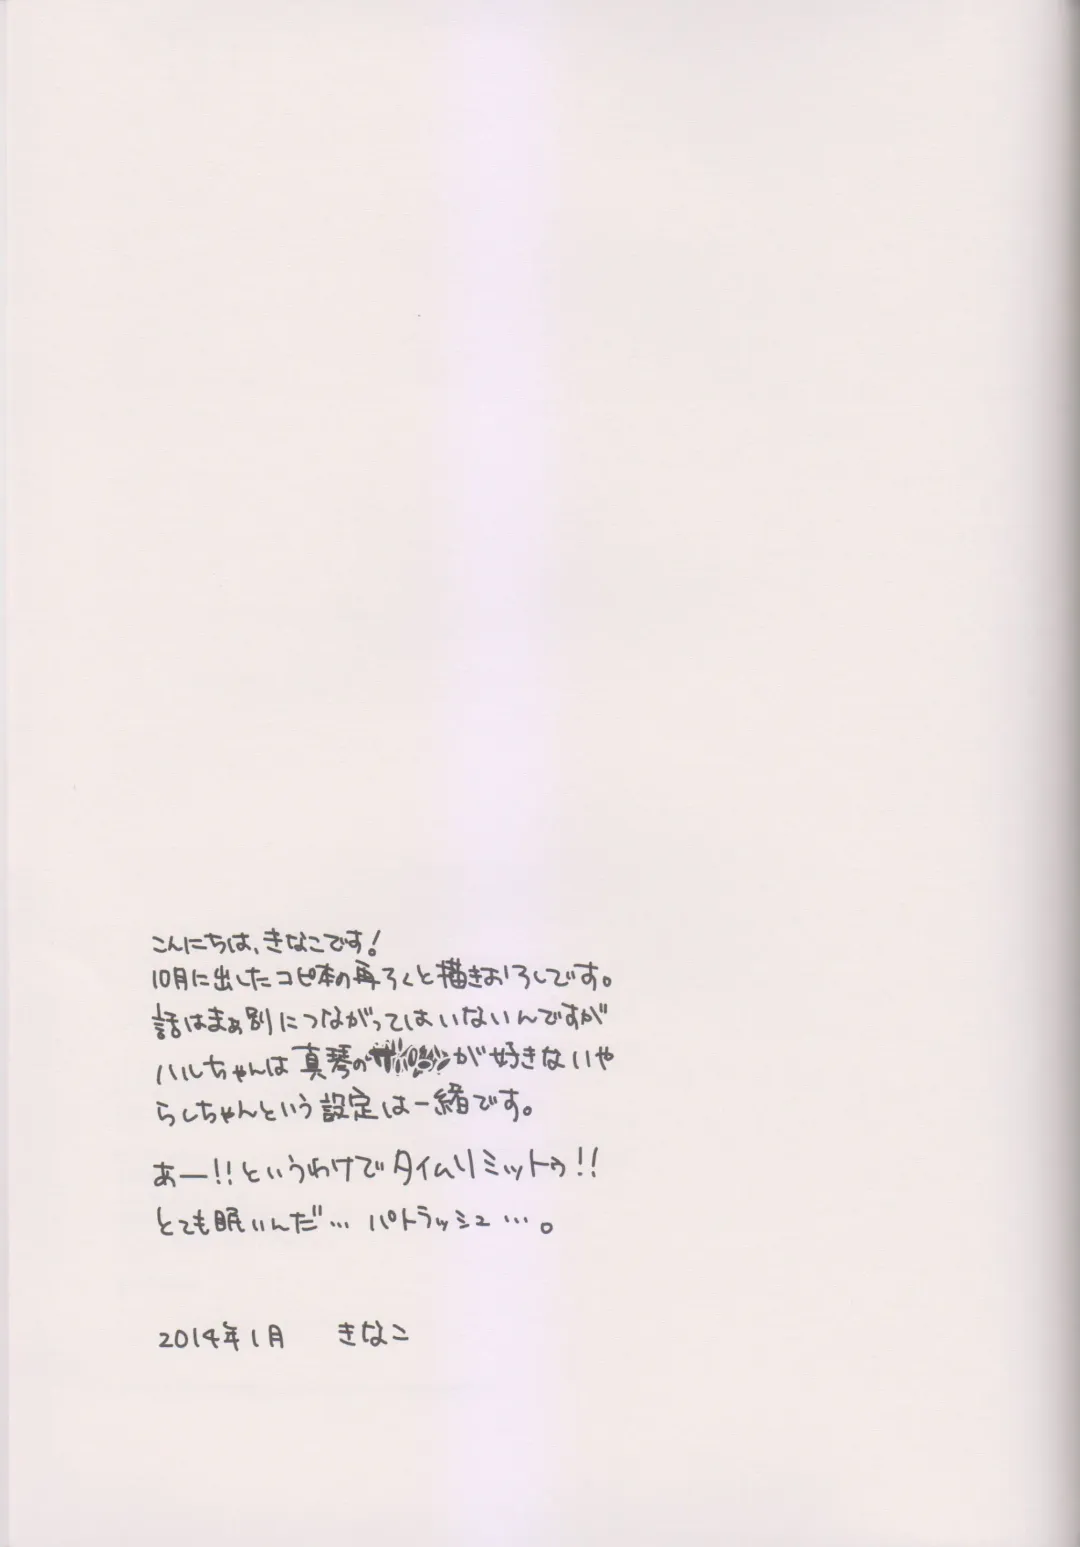 こんにちは、きなこです!
10月に出したコピ本の再ろくと描きおろしです。
話はまぁ別につながってはいないんですが
ハルちゃんは真琴のが好きないや
らしちゃんという設定は一緒です。
あー!!というわけでタイムリミットゥ!!
とても眠いんだ… パトラッシュ…。
2014年1月 きなこ